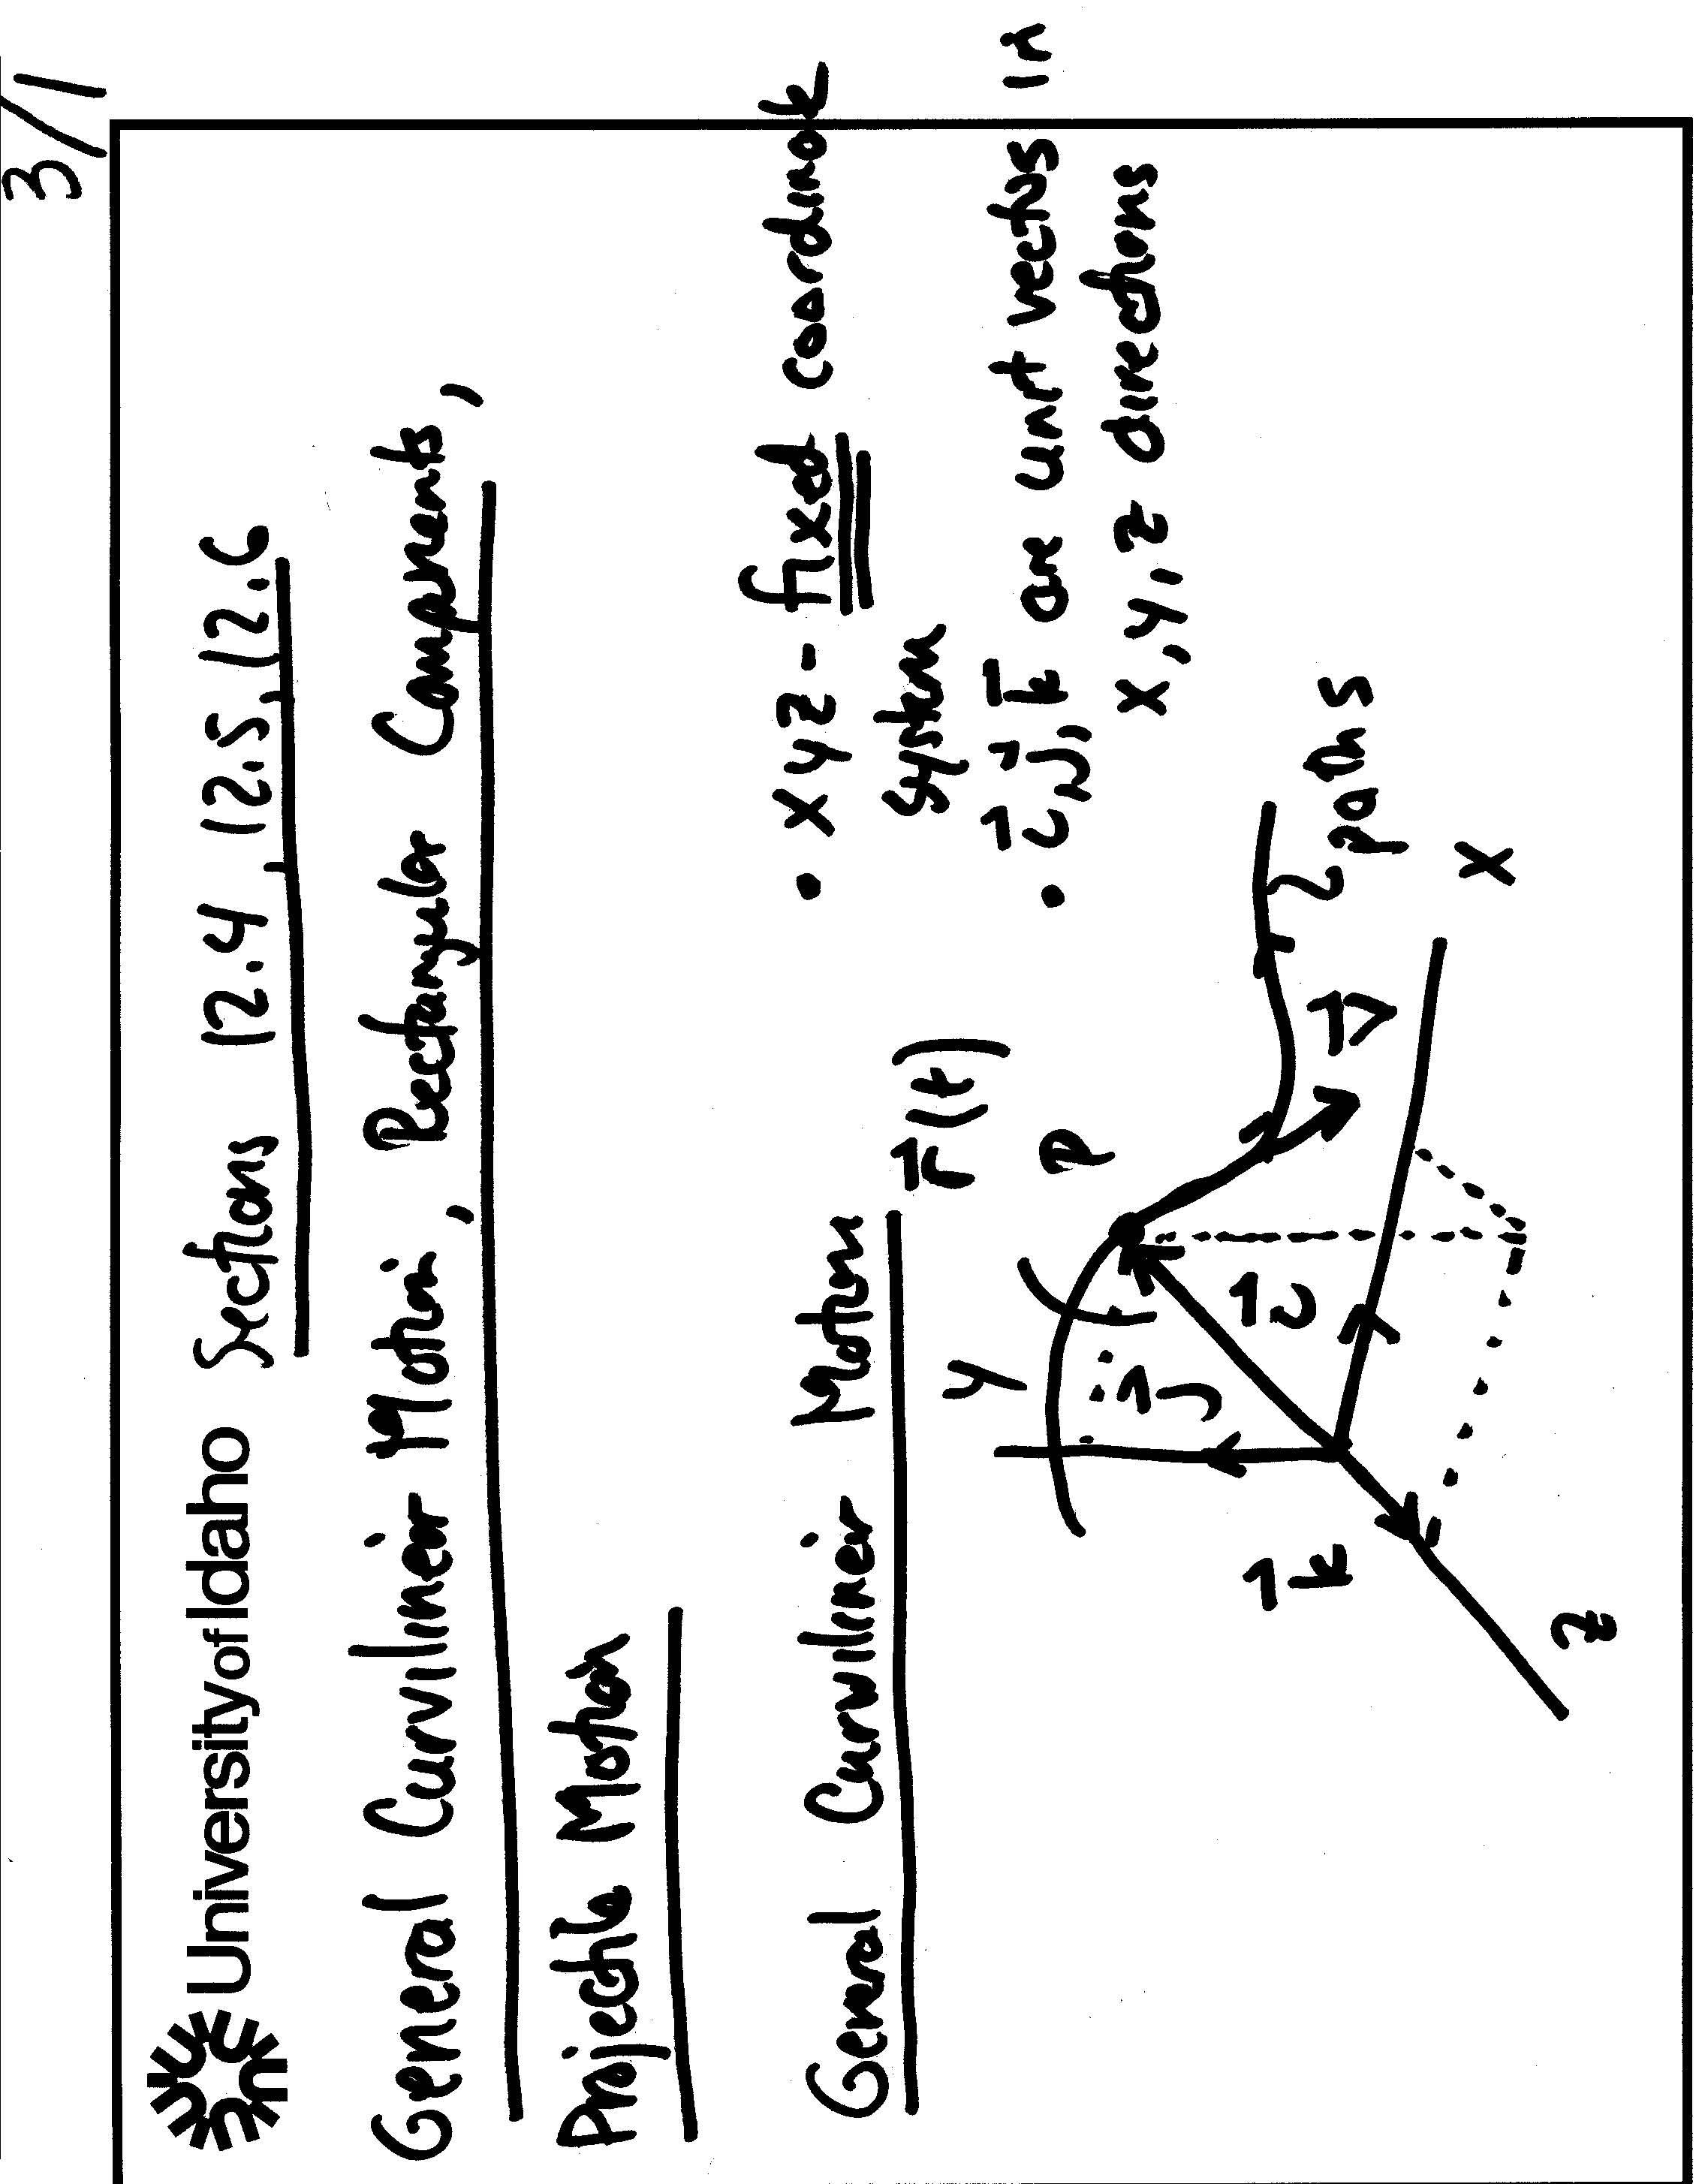 3/1
University of Idaho Sections 12.4, 12.5, 12.6
General Curvilinear Motion, Rectangular Components,
Projectile Motion
General Curvilinear Motion
• xyz - fixed coordinate
system
• i, j, k are unit vectors in
x, y, z directions
r(t)
y
P
j
i
k
v
path s
x
z